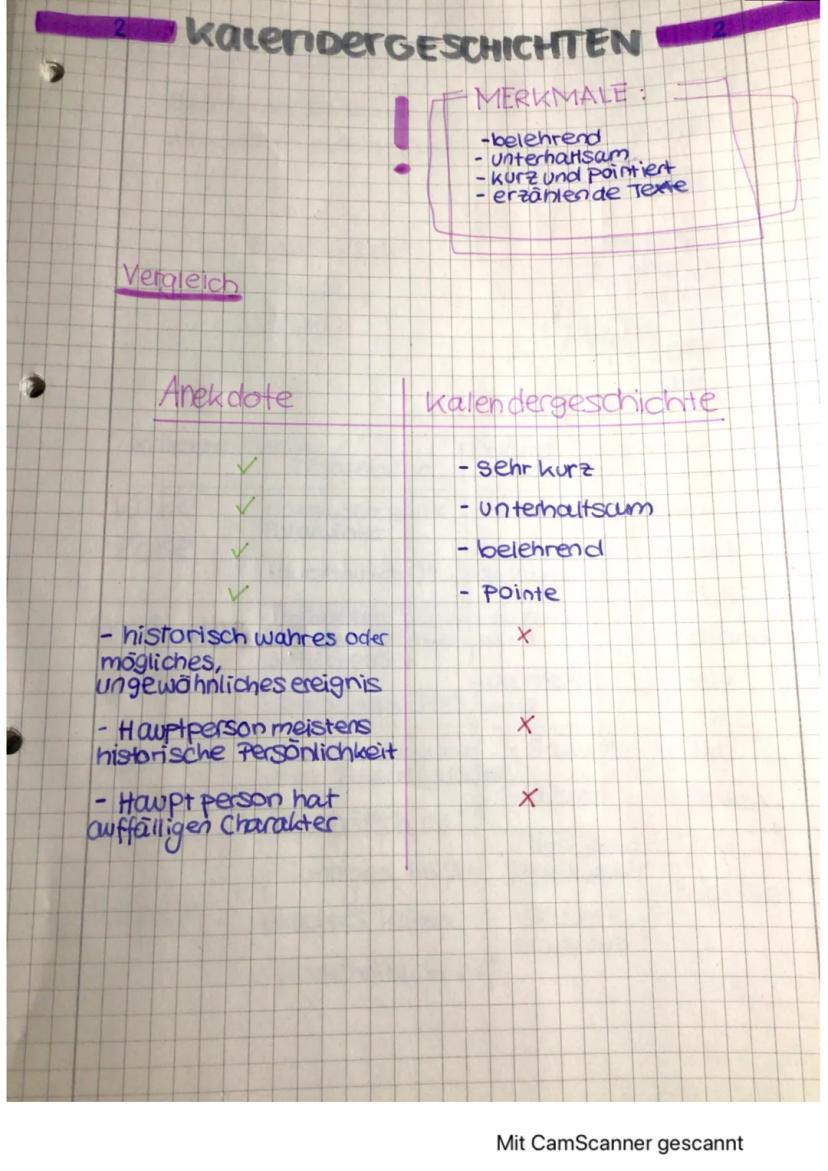 2 KalenDerGESCHICHTEN 2
MERKMALE:
-belehrend
- unterhaltsam
- kurz und pointiert
- erzählende Texte
Vergleich
Anekdote
Kalendergeschichte
✓ - sehr kurz
✓ - unterhaltsam
✓ - belehrend
✓ - Pointe
- historisch wahres oder
mögliches,
ungewöhnliches ereignis
x
- Hauptperson meistens
historische Persönlichkeit
x
- Hauptperson hat
auffälligen Charakter
x
Mit CamScanner gescannt